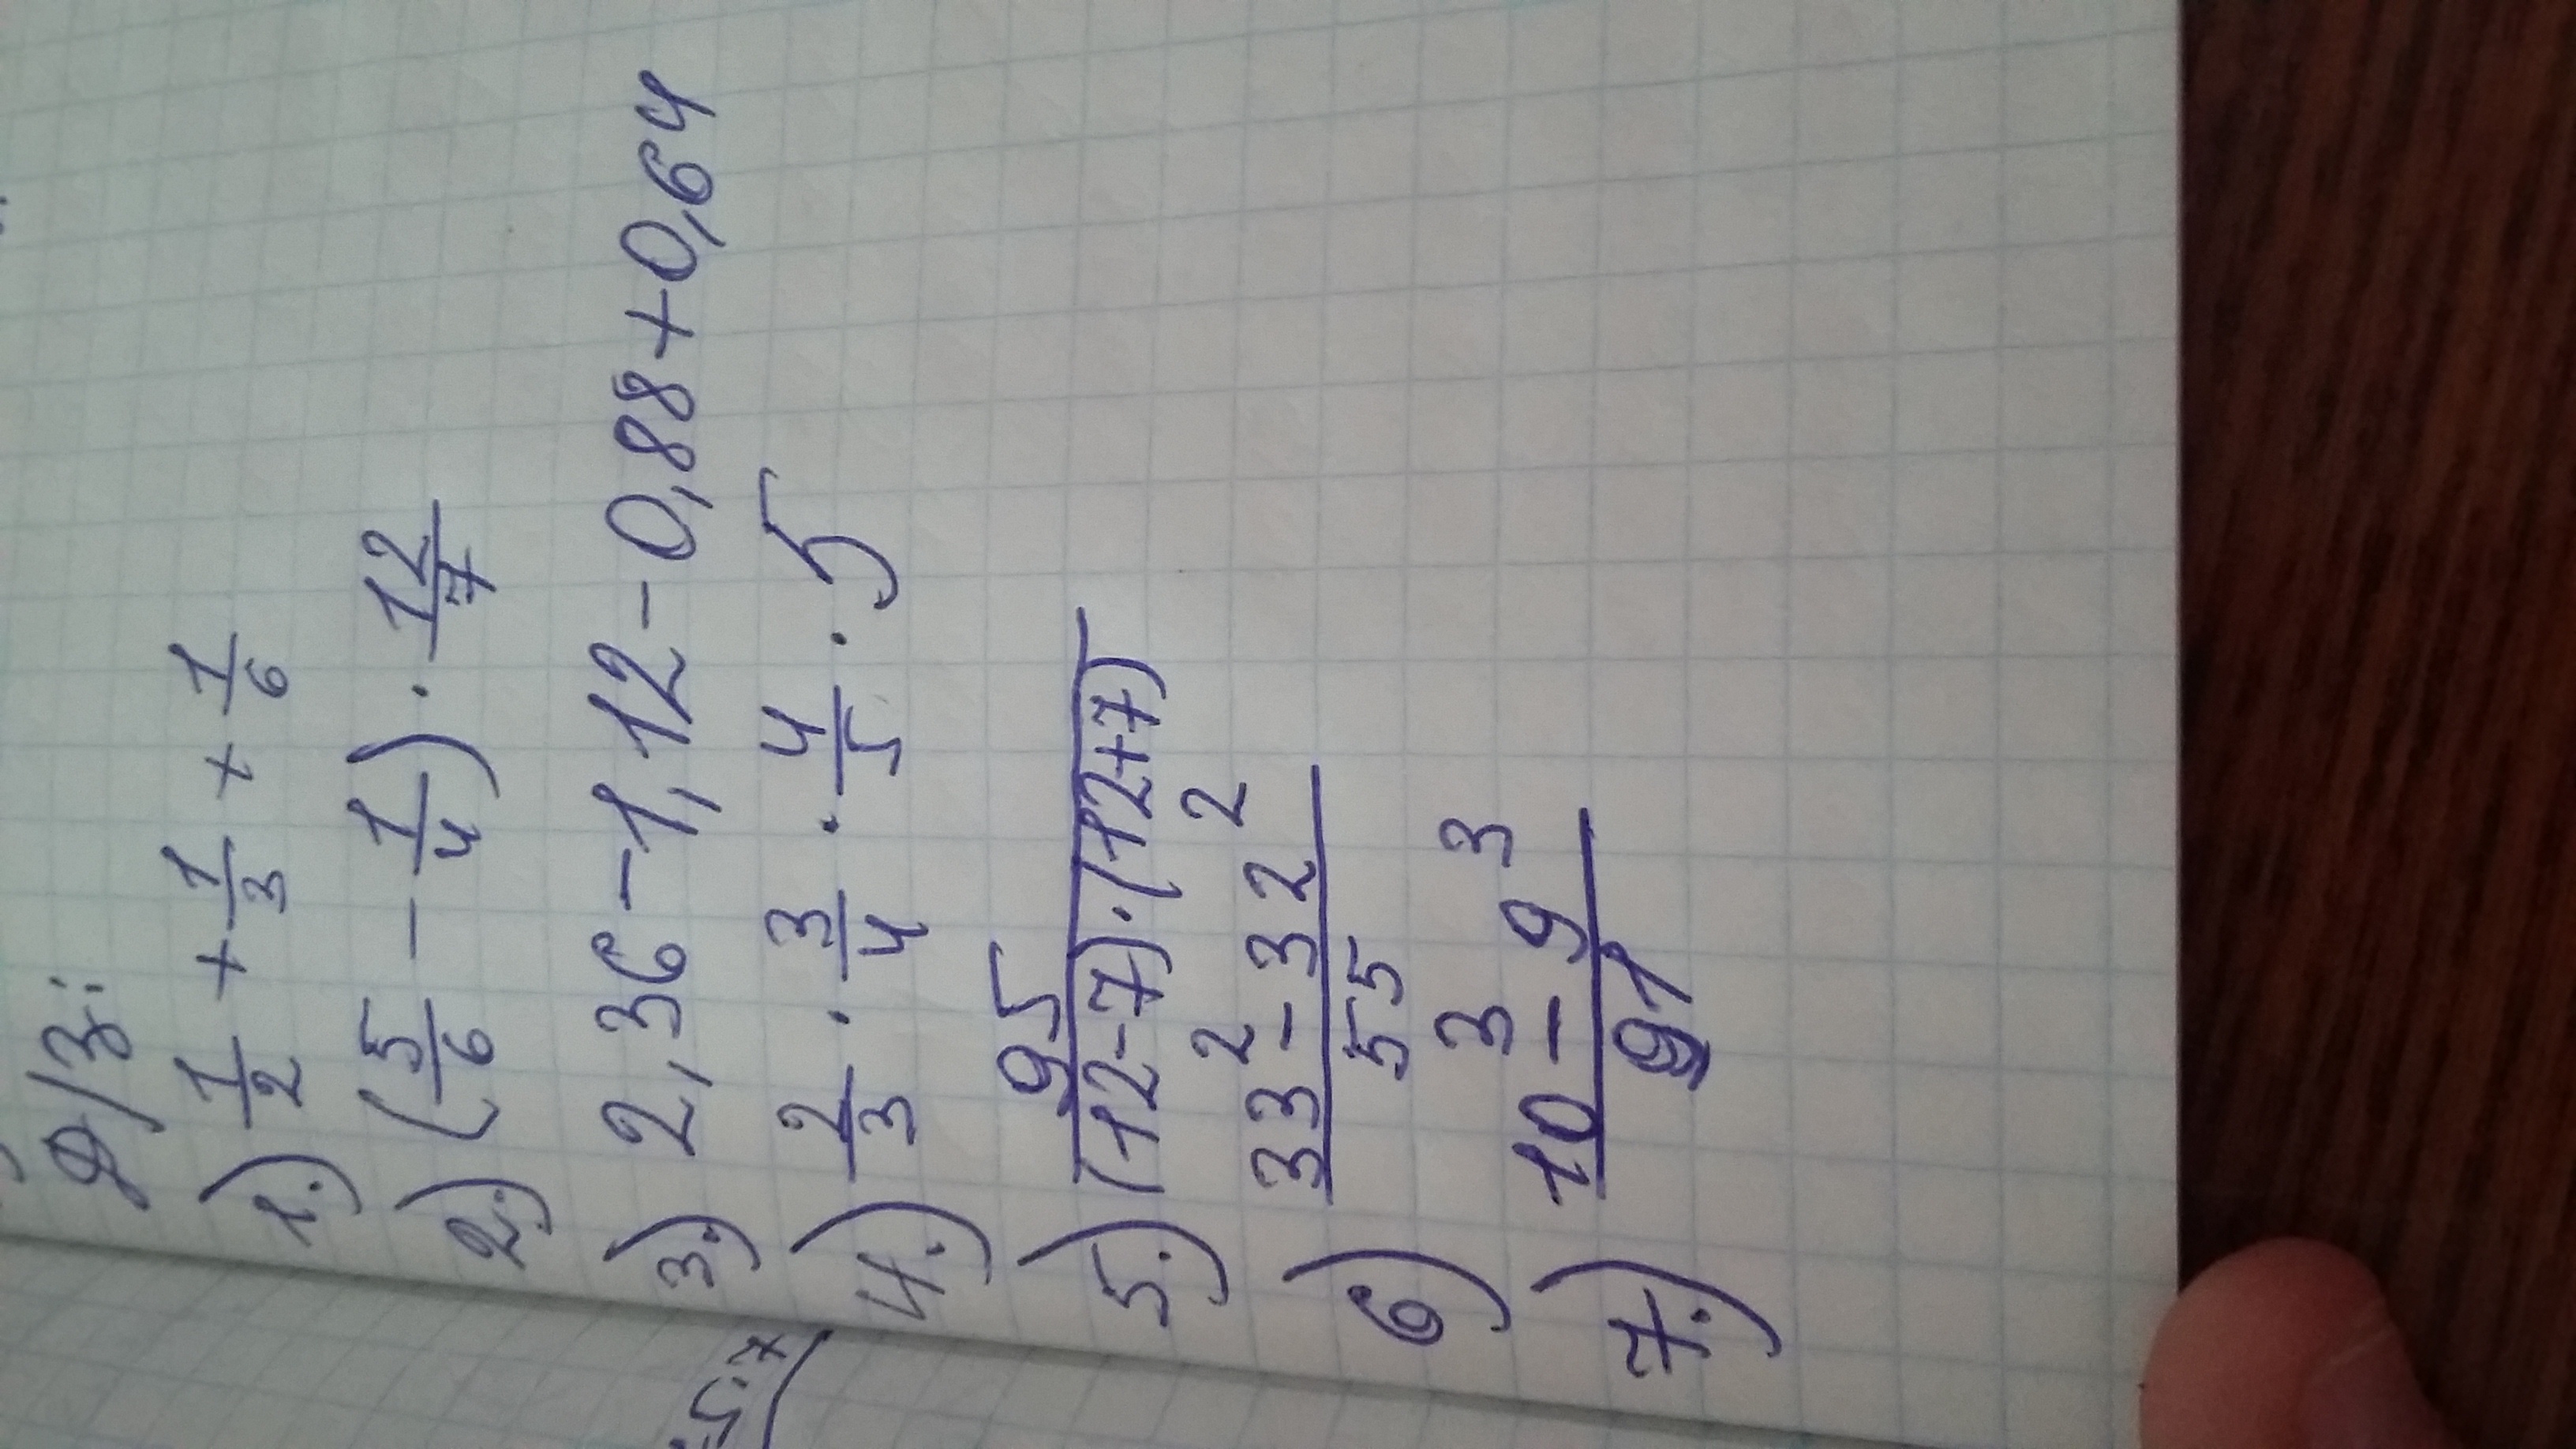 Д/З:
1.) 1/2 + 1/3 + 1/6
2.) (5/6 - 1/4) · 12/7
3.) 2,36 - 1,12 - 0,88 + 0,64
4.) 2/3 · 3/4 · 4/5 · 5
5.) 95/((12-7)·(12+7))
6) (33² - 32²)/55
7.) (10³ - 9³)/91